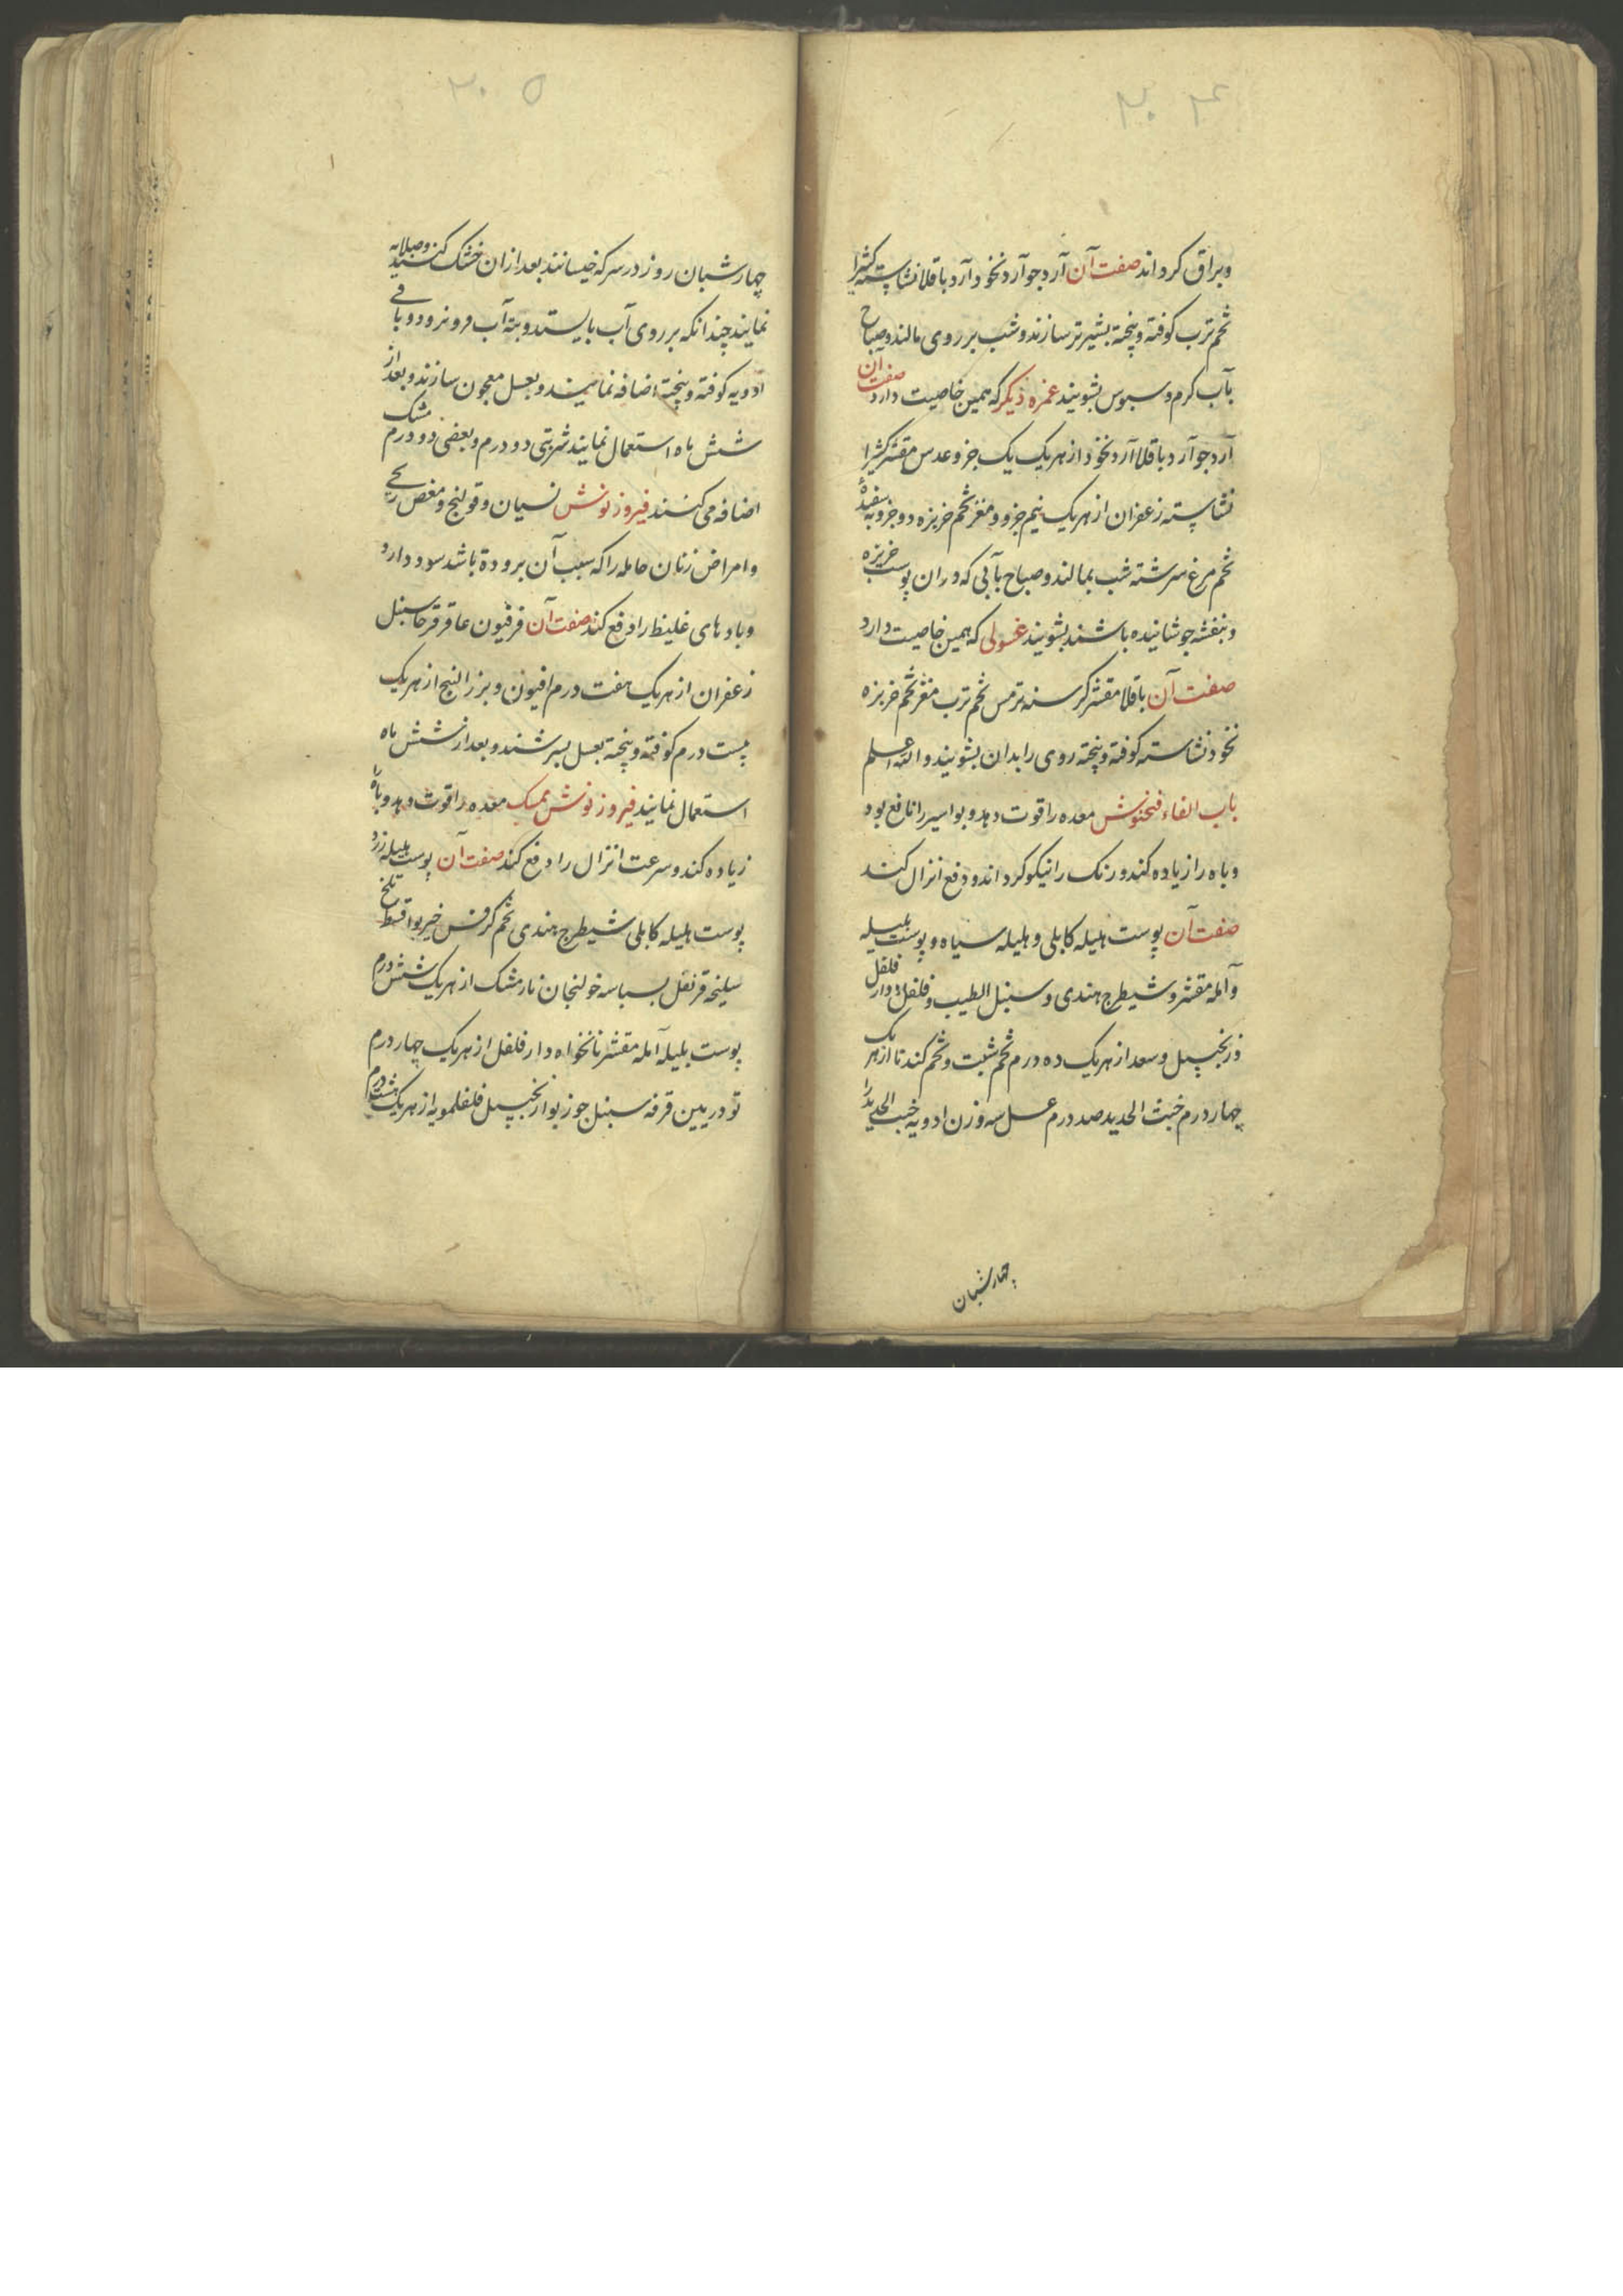 ۳۰۴
وبراق کرداند صفت آن آرد جو آرد نخود آرد باقلا نشاسته کثیرا
تخم ترب کوفته وپخته بشیر تر سازند وشب بر روی مالند وصباح
بآب کرم وسبوس بشویند غمزه دیکر که همین خاصیت دارد صفت آن
آرد جو آرد باقلا آرد نخود از هر یک یک جزو عدس مقشر کثیرا
نشاسته زعفران از هر یک نیم جزو ومغز تخم خربزه دو جزو به سفیدهٔ
تخم مرغ سرشته شب بمالند وصباح بآبی که دران پوست خربزه
وبنفشه جوشانیده باشند بشویند غسولی که همین خاصیت دارد
صفت آن باقلا مقشر کرسنه ترمس تخم ترب مغز تخم خربزه
نخود نشاسته کوفته وپخته روی را بدان بشویند والله اعلم
باب الفاء فنجنوش معده را قوت دهد وبواسیر را نافع بود
وباه را زیاده کند ورنک را نیکو کرداند ودفع انزال کند
صفت آن پوست هلیله کابلی وهلیله سیاه وپوست بلیله
وآمله مقشر وشیطرج هندی وسنبل الطیب وفلفل ودار فلفل
وزنجبیل وسعد از هر یک ده درم تخم شبت وتخم کندنا از هر یک
چهار درم خبث الحدید صد درم عسل سه وزن ادویه خبث الحدید را
چهارشبان
۳۰۵
چهار شبان روز در سرکه خیسانند بعد ازان خشک کنند وصلایه
نمایند چندانکه بر روی آب بایستد وبته آب فرو نرود وباقی
ادویه کوفته وپخته اضافه نمایند وبعسل معجون سازند وبعد از
شش ماه استعمال نمایند شربتی دو درم وبعضی دو درم مشک
اضافه می کنند فیروزنوش نسیان وقولنج ومغص ریحی
وامراض زنان حامله را که سبب آن برودة باشد سود دارد
وبادهای غلیظ را دفع کند صفت آن فرفیون عاقرقرحا سنبل
زعفران از هر یک هفت درم افیون وبزر البنج از هر یک
بیست درم کوفته وپخته بعسل بسرشند وبعد از شش ماه
استعمال نمایند فیروزنوش ممسک معده را قوت دهد وباه را
زیاده کند وسرعت انزال را دفع کند صفت آن پوست هلیله زرد
پوست هلیله کابلی شیطرج هندی تخم کرفس خیربوا قسط تلخ
سلیخه قرنفل بسباسه خولنجان نارمشک از هر یک شش درم
پوست بلیله آمله مقشر نانخواه دار فلفل از هر یک چهار درم
تودریین قرفه سنبل جوزبوا زنجبیل فلفلمویه از هر یک هشت درم